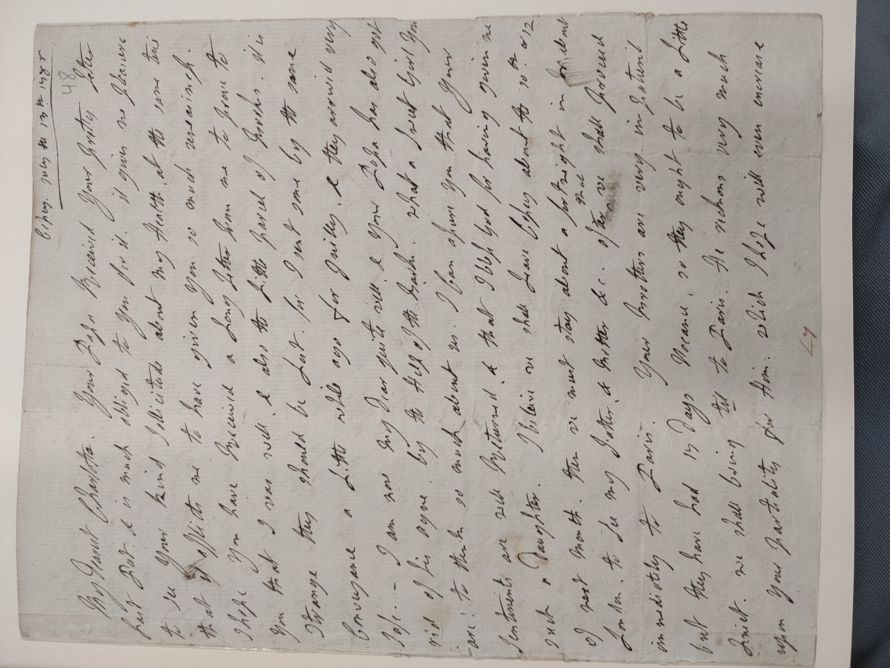 July the 13th 1785
48
My Dearest Charlotte. Your Papa Received Your pretty letter
last Post & is much obliged to You for it. it gives me pleasure
to see Your kind Solicitude about my Health. at the same time
that it afflicts me to have given You so much uneasiness.
I hope You have Received a Long Letter from me to prove to
You that I was well. & also the Little parcel of
Strange they should be Lost. for I sent some by the same
Conveyance a Little while ago for & they arrived very
safe. - I am now my Dear quite well. & Your Papa has also got
rid of his ague. by the Help of the Bark. what a sweet Girl You
are! to think so much about us. I can assure You that Your
Sentiments are well Returned. & that I bless God for having given me
such a Daughter. I believe we shall Leave about the 10th or 12
of next Month. then we must stay about a fortnight in
London. to see my Father. & Mother &c. after that we shall proceed
immediately to Paris. Your Brothers are very impatient
but they have had 17 Days Vacance. so they ought to be a Little
quiet. we shall bring to Paris. He reckons very much
upon Your Partiality for him. which I hope will even encrease
49